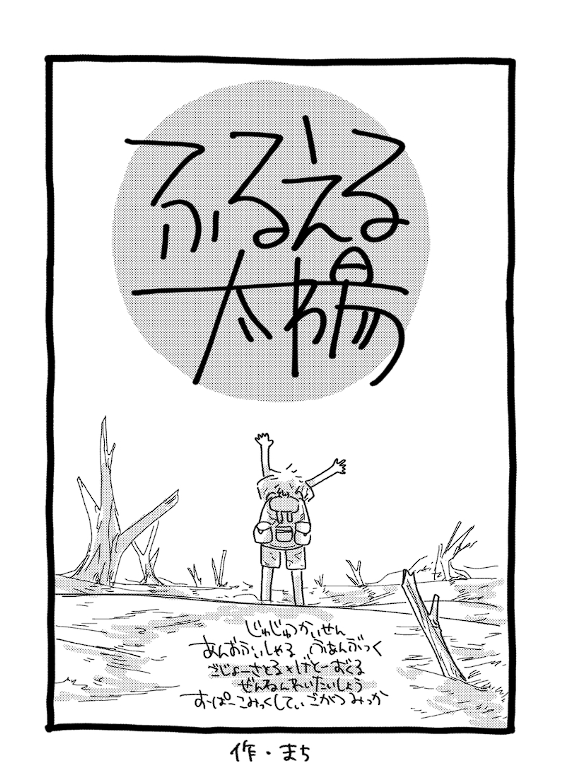 ふるえる
太陽
じゅじゅつかいせん
あんおふぃしゃる ふぁんぶっく
ごじょーさとる×げとーすぐる
ぜんねんれいたいしょう
すーぱーこみっくしてぃ ごがつみっか
作・まち